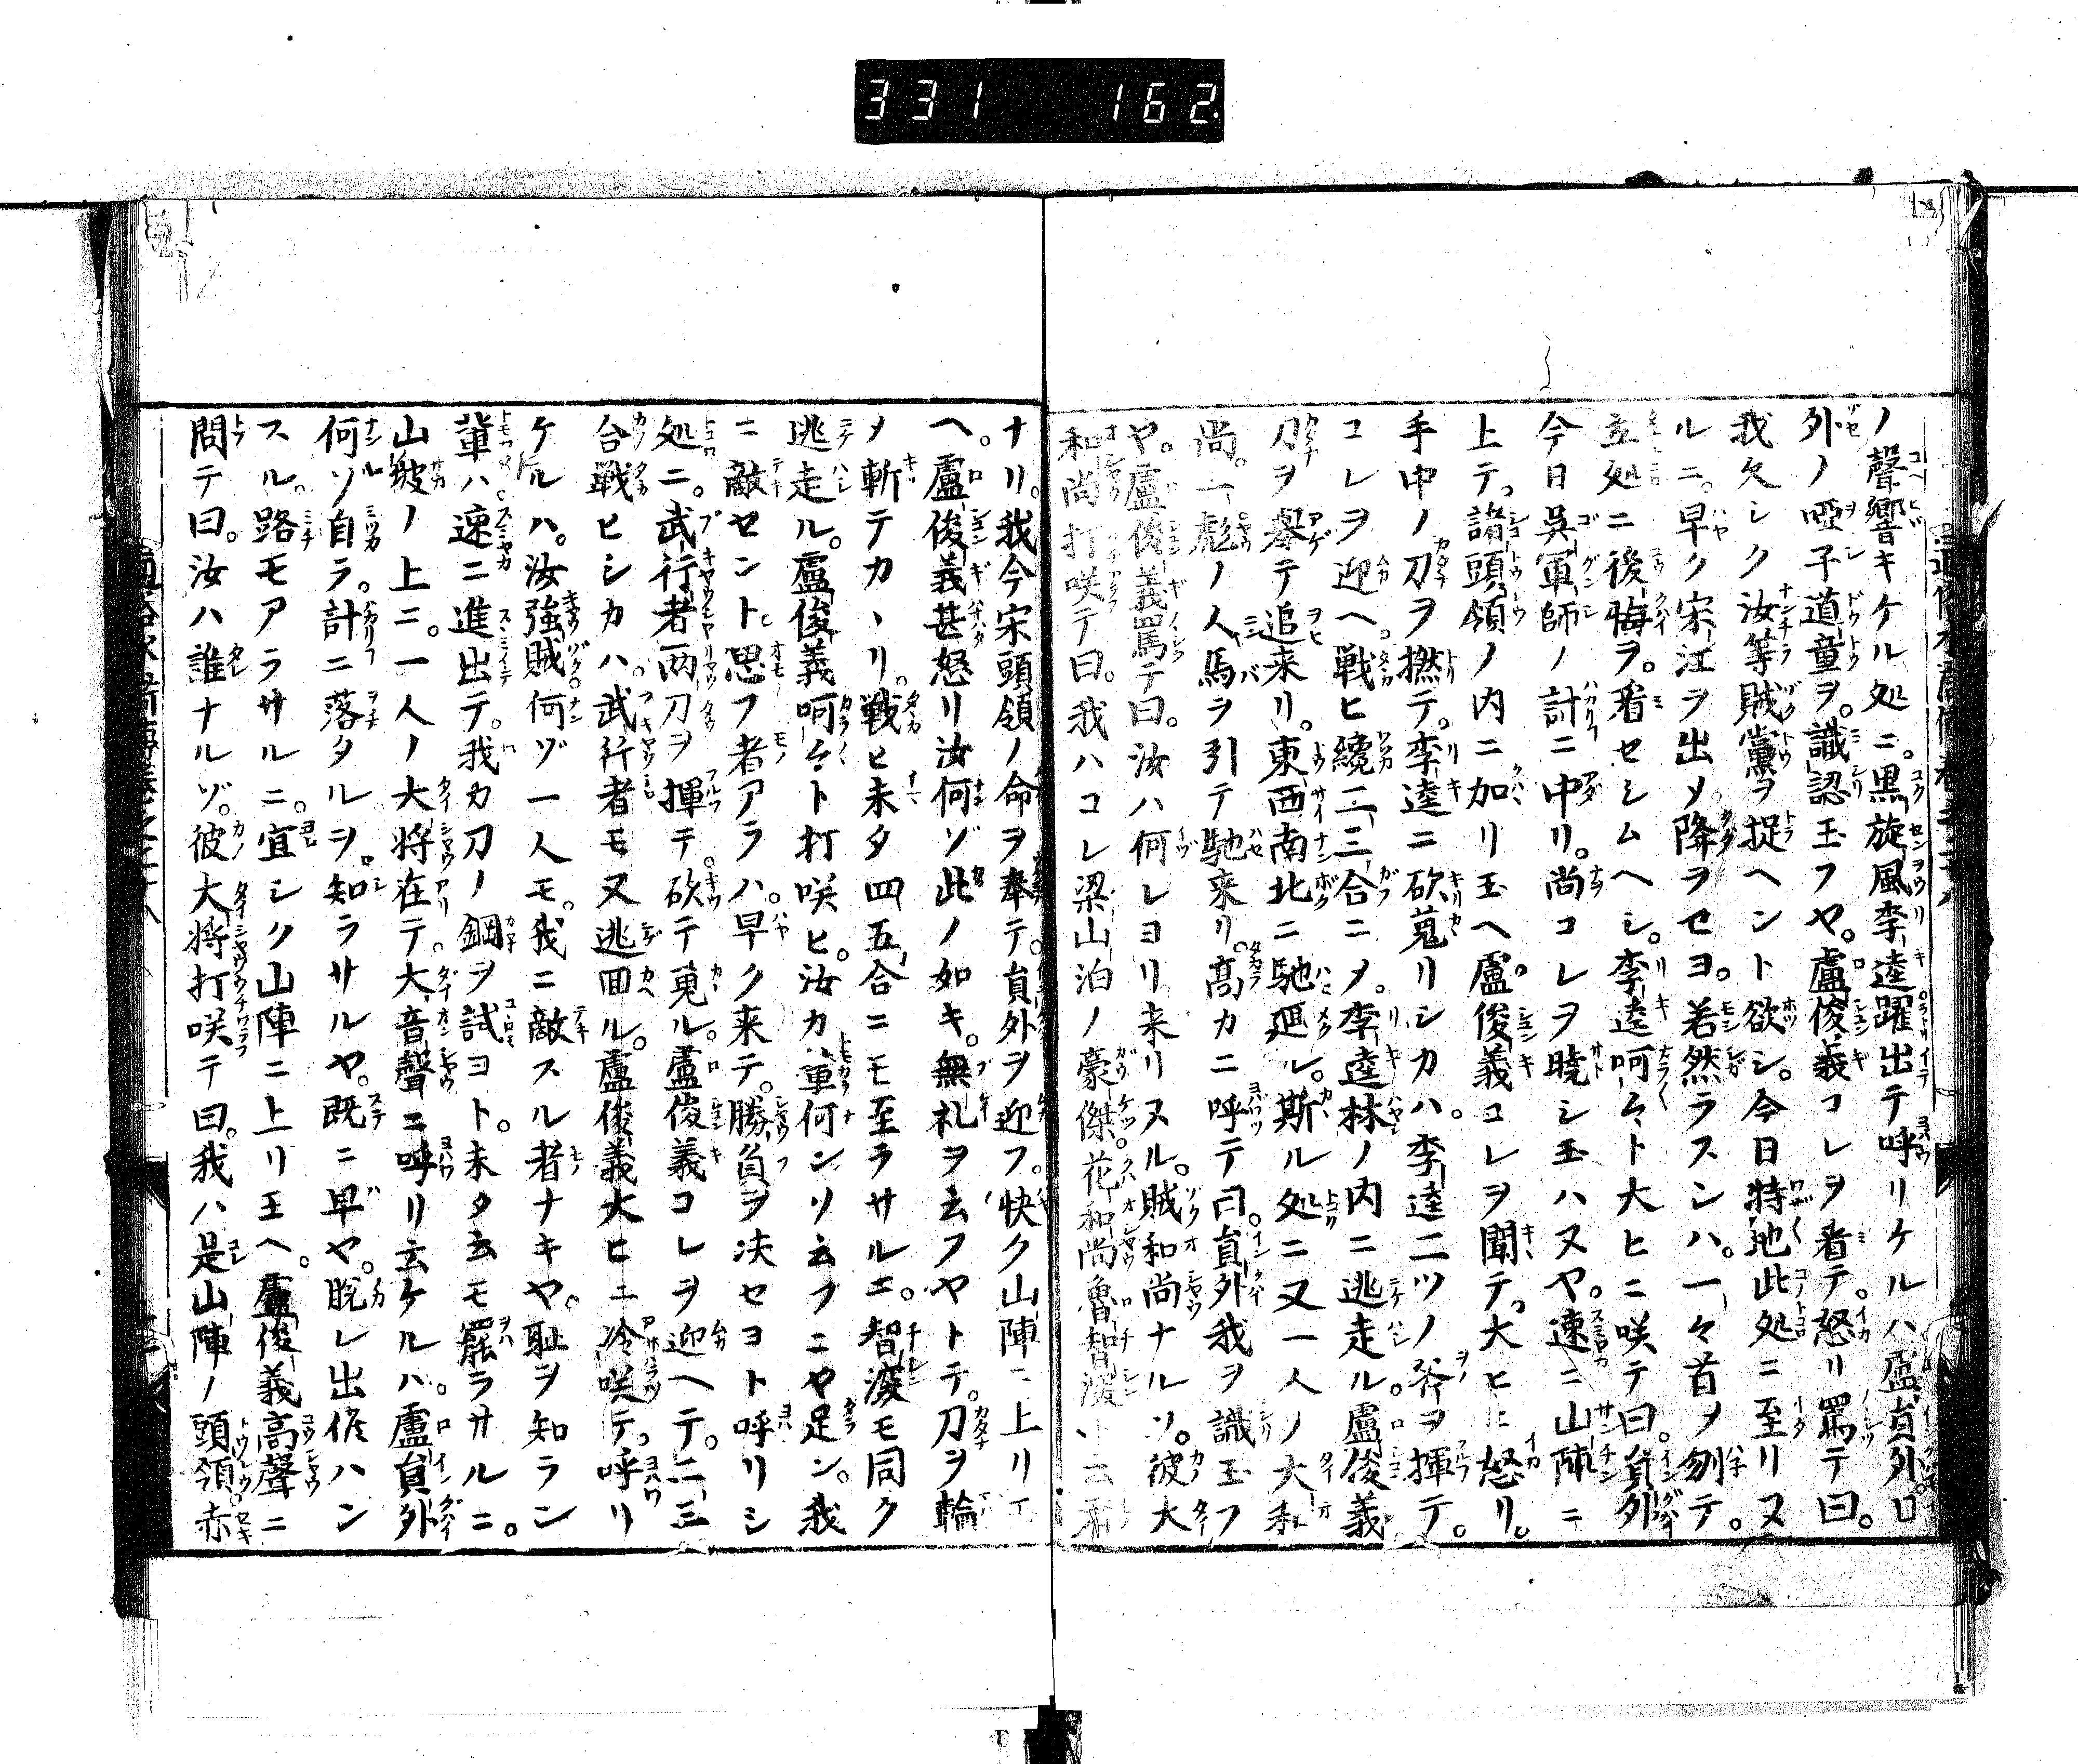 331 162
ノ聲響キケル処ニ。黒旋風李逵躍出テ呼リケルハ盧員外。口
外ノ啞子道童ヲ。識認玉フヤ。盧俊義コレヲ看テ。怒リ罵テ曰。
我久シク汝等賊黨ヲ捉ヘント欲シ。今日特地此処ニ至リヌ
ルニ。早ク宋江ヲ出メ。降ラセヨ。若然ラスンハ。一々首ヲ刎テ。
立処ニ後悔ヲ。看セシムヘシ。李逵呵々ト大ヒニ咲テ曰。員外
今日吳軍師ノ計ニ中リ。尚コレヲ曉シ玉ハヌヤ。速ニ山陣ニ
上テ。諸頭領ノ内ニ加リ玉ヘ。盧俊義コレヲ聞テ。大ヒニ怒リ。
手中ノ刀ヲ撚テ。李逵ニ砍蒐リシカハ。李逵二ツノ斧ヲ揮テ。
コレヲ迎ヘ。戰ヒ纔二三合ニメ。李逵林ノ内ニ逃走ル。盧俊義
刀ヲ擧テ追来リ。東西南北ニ馳廻ル。斯ル処ニ又一人ノ大和
尚。一彪ノ人馬ヲ引テ馳来リ。高カニ呼テ曰。員外我ヲ識玉フ
ヤ。盧俊義罵テ曰。汝ハ何レヨリ来リヌル。賊和尚ナルソ。彼大
和尚打咲テ曰。我ハコレ梁山泊ノ豪傑。花和尚魯智深ト云者
ナリ。我今宋頭領ノ命ヲ奉テ。員外ヲ迎フ。快ク山陣ニ上リ玉
ヘ。盧俊義甚怒リ汝何ゾ此ノ如キ。無礼ヲ云フヤトテ。刀ヲ輪
メ斬テカヽリ。戰ヒ未タ四五合ニモ至ラサルニ。智深モ同ク
逃走ル。盧俊義呵々ト打咲ヒ。汝カ輩何ンソ云フニヤ足ン。我
ニ敵セント。思フ者アラハ。早ク来テ。勝負ヲ决セヨト呼リシ
処ニ。武行者兩刀ヲ揮テ。砍テ蒐ル。盧俊義コレヲ迎ヘテ。二三
合戰ヒシカハ。武行者モ又逃囬ル。盧俊義大ヒニ冷咲テ。呼リ
ケルハ。汝強賊何ゾ一人モ。我ニ敵スル者ナキヤ。耻ヲ知ラン
輩ハ。速ニ進出テ。我カ刀ノ鋼ヲ試ヨト。未タ云モ罷ラサルニ。
山坡ノ上ニ。一人ノ大将在テ。大音聲ニ呼リ云ケルハ。盧員外
何ソ自ラ。計ニ落タルヲ。知ラサルヤ。既ニ早ヤ。脱レ出候ハン
スル。路モアラサルニ。宜シク山陣ニ上リ玉ヘ。盧俊義高聲ニ
問テ曰。汝ハ誰ナルゾ。彼大将打咲テ曰。我ハ是山陣ノ頭領赤